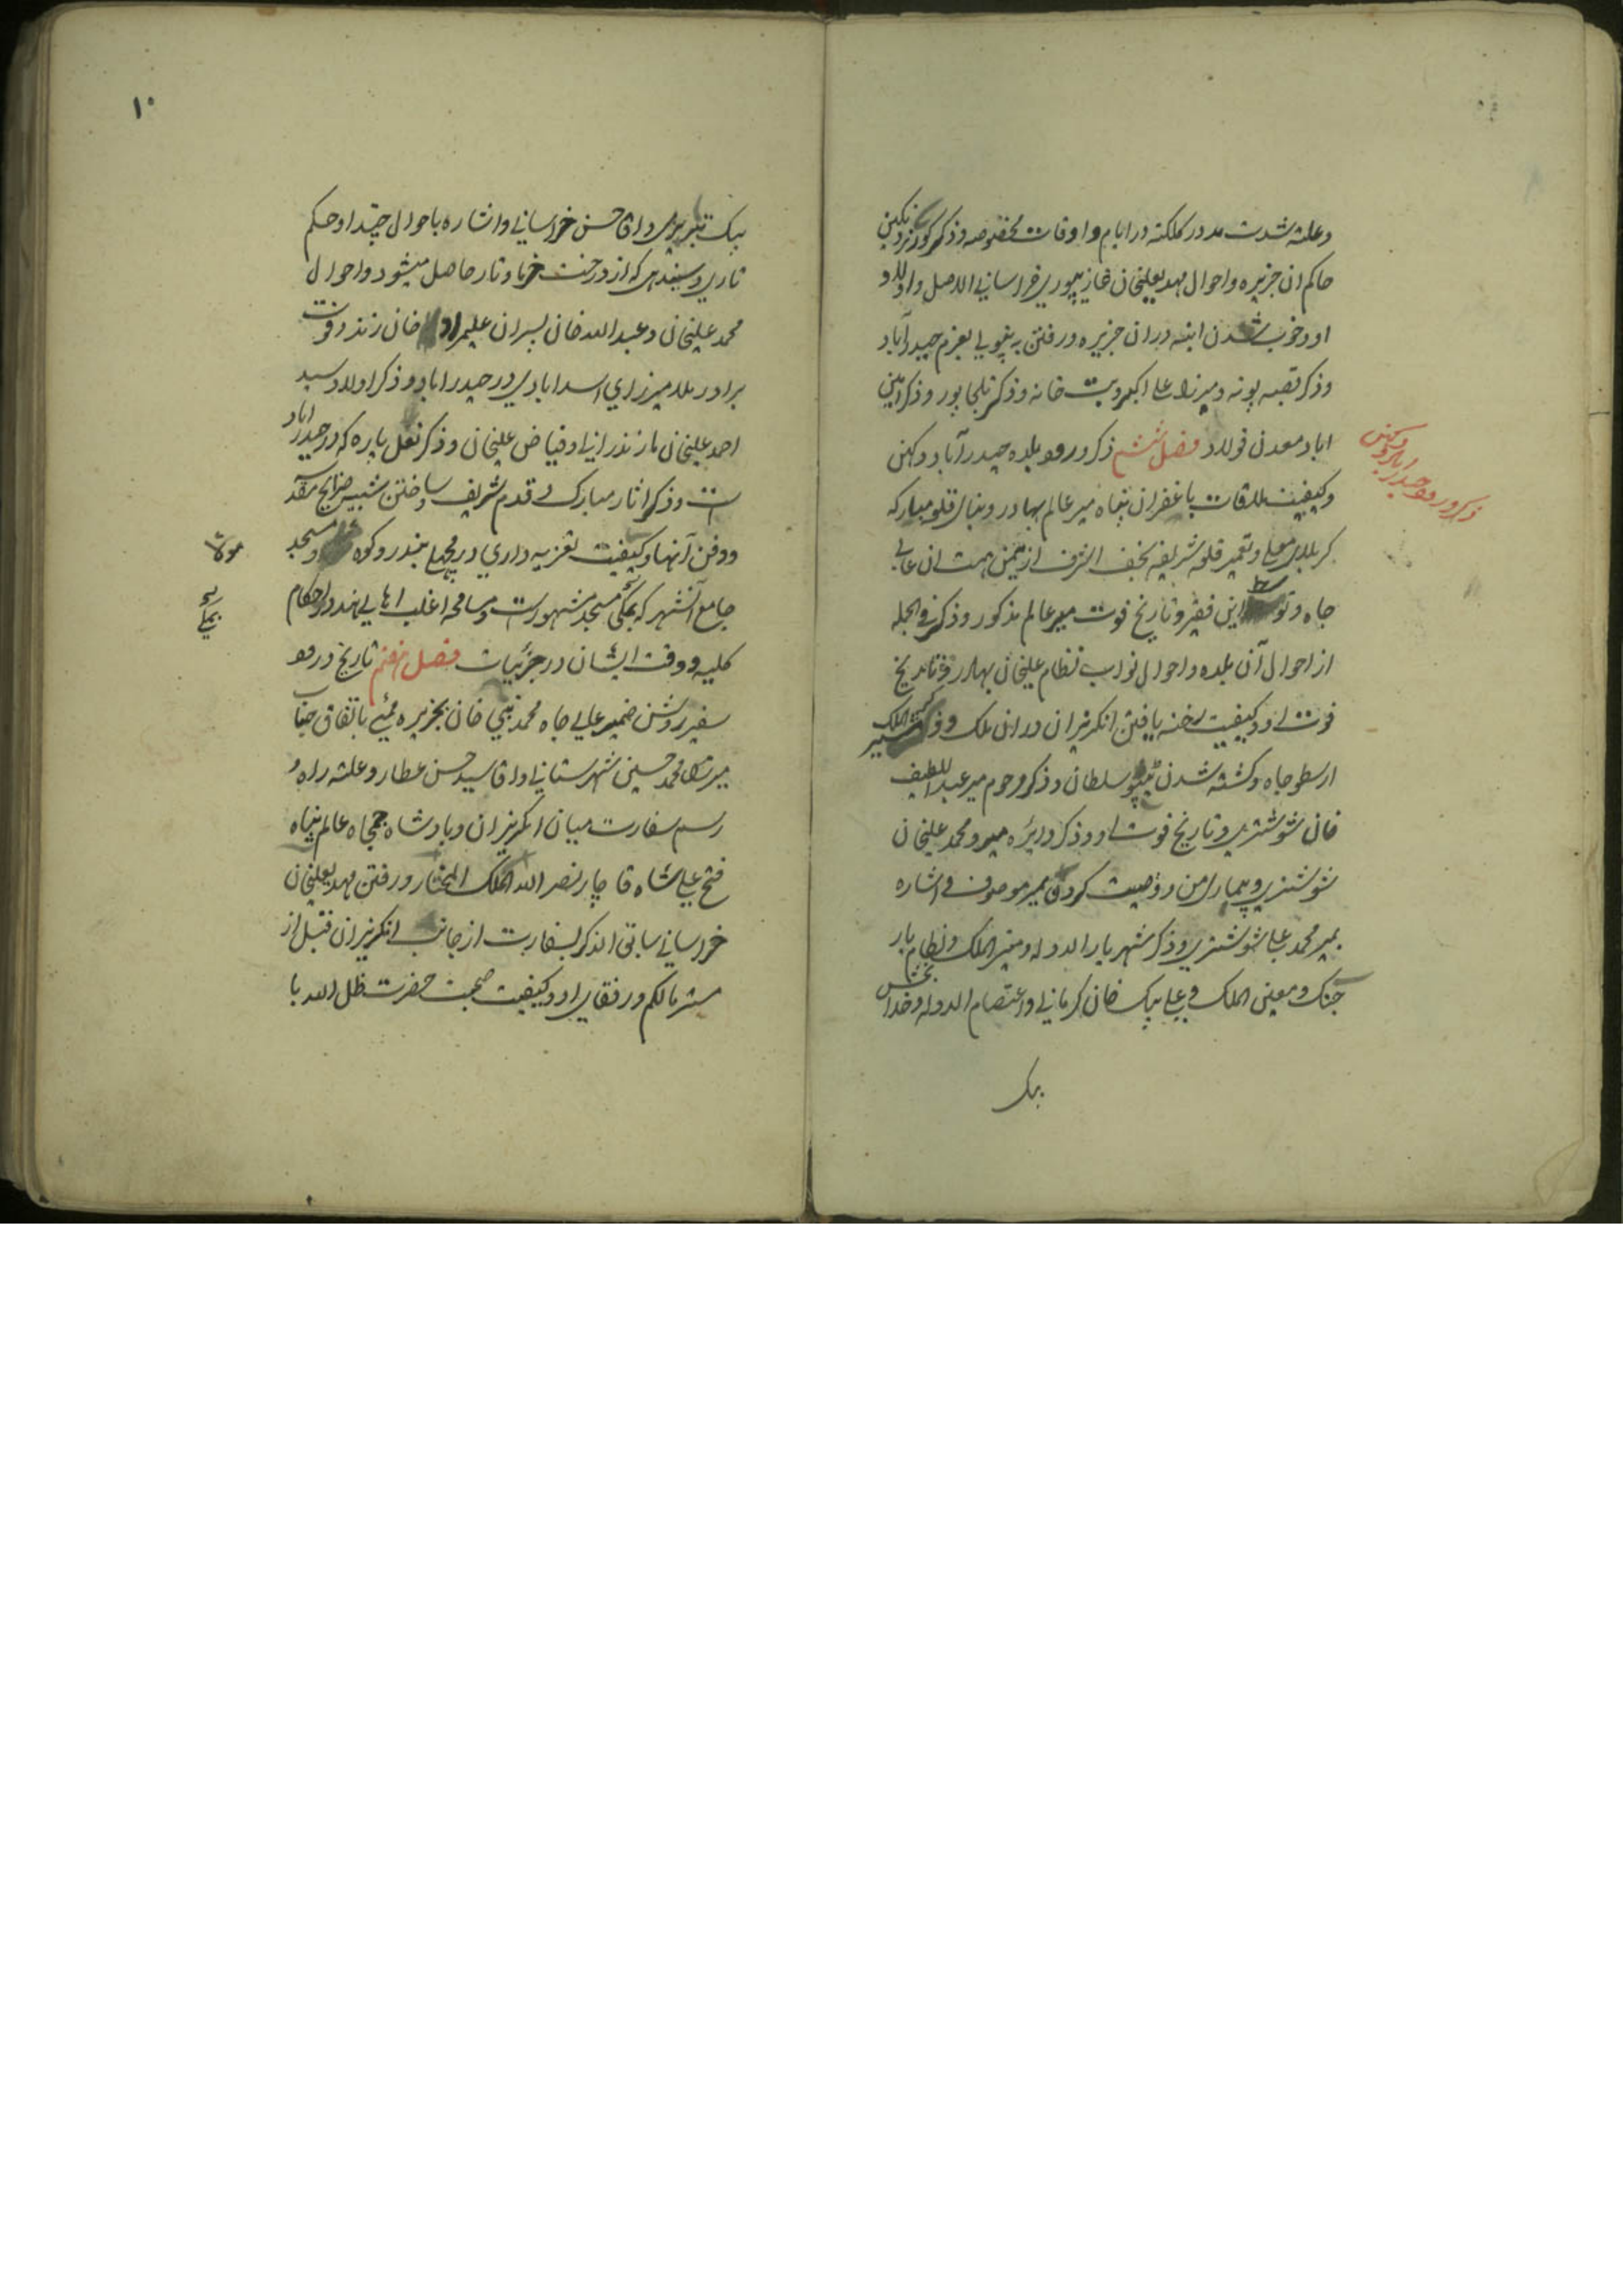 وعلة شدت مد در کلکته در ایام و اوقات مخصوصه و ذکر
حاکم ان جزیره و احوال مهدیعلیخان خراسانی الاصل و اولاد
او و خوب شدن ابنیه در ان جزیره و رفتن به بعزم حیدرآباد
و ذکر قصبه پونه و میرزا علی اکبر و بت خانه و ذکر تلجاپور و ذکر
اباد معدن فولاد فصل ششم ذکر ورود ببلده حیدرآباد دکهن
ذکر ورود حیدراباد دکهن
و کیفیت ملاقات با غفران پناه میر عالم بهادر و بنای قلعه مبارکه
کربلای معلی و تعمیر قلعه شریفه نجف اشرف از یمن همت ان عالی
جاه و توسط این فقیر و تاریخ فوت میر عالم مذکور و ذکر فی الجمله
از احوال آن بلده و احوال نواب نظام علیخان بهادر و تاریخ
فوت او و کیفیت رخنه یافتن انکریزان در ان ملک و ذکر
ارسطو جاه و کشته شدن ٹیپو سلطان و ذکر مرحوم میر عبداللطیف
خان شوشتری و تاریخ فوت او و ذکر دایره میر و محمد علیخان
شوشتری و بیماری من و وصیت کردن بمیر موصوف و اشاره
بمیر محمد علی شوشتری و ذکر شهریار الدوله و منیر الملک و نظام یار
جنک و معین الملک و علی بیک خان کرمانی و اعتصام الدوله و خدابخش
بیک
۱۰
بیک تبریزی و اقا حسن خراسانی و اشاره باحوال چندا و حکم
تاری و سیندی که از درخت خرما و تار حاصل میشود و احوال
محمد علیخان و عبدالله خان پسران علیمراد خان زند و فوت
برادر میرزای اسدابادی در حیدراباد و ذکر اولاد سید
احمد علیخان مازندرانی و فیاض علیخان و ذکر نعل پاره که در حیدراباد
است و ذکر اثار مبارک و قدم شریف و ساختن شبیه ضرایح مقدسه
و دفن آنها و کیفیت تعزیه داری در مچهلی بندر و کوه مولا و مسجد
مولا
جامع آنشهر که بمکی مسجد مشهور است و مسامحه اغلب اهالی هند در احکام
کلیه و دقت ایشان در جزئیات فصل هفتم تاریخ ورود
سفیر روشن ضمیر عالی جاه محمد نبی خان بجزیره ممبئی باتفاق جناب
میرزا محمد حسین شهرستانی و اقا سید حسن عطار و علت راه و
رسم سفارت میان انکریزان و پادشاه جمجاه عالم پناه
فتح علی شاه قاچار نصر الله الملک المختار و رفتن مهدیعلیخان
خراسانی سابق الذکر بسفارت از جانب انکریزان قبل از
مستر مالکم و رفقای او و کیفیت صحبت حضرت ظل الله با